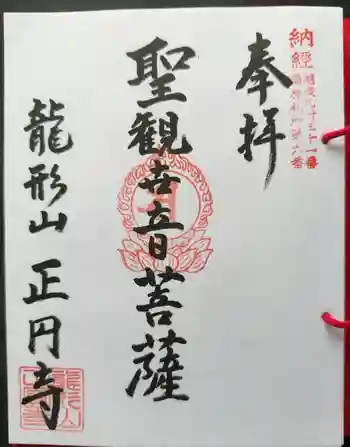 納経
奉拝
聖観世音菩薩
龍形山 正円寺